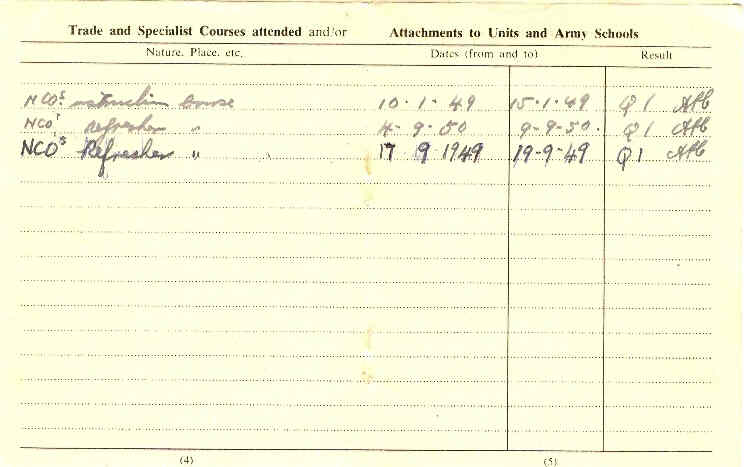 Trade and Specialist Courses attended and/or Attachments to Units and Army Schools
Nature, Place, etc. Dates (from and to) Result
NCOs instruction Course 10.1.49 15.1.49 Q1
NCOs Refresher " 4-9-50 9-9-50. Q1
NCOs Refresher " 17 9 1949 19-9-49 Q1
(4) (5)